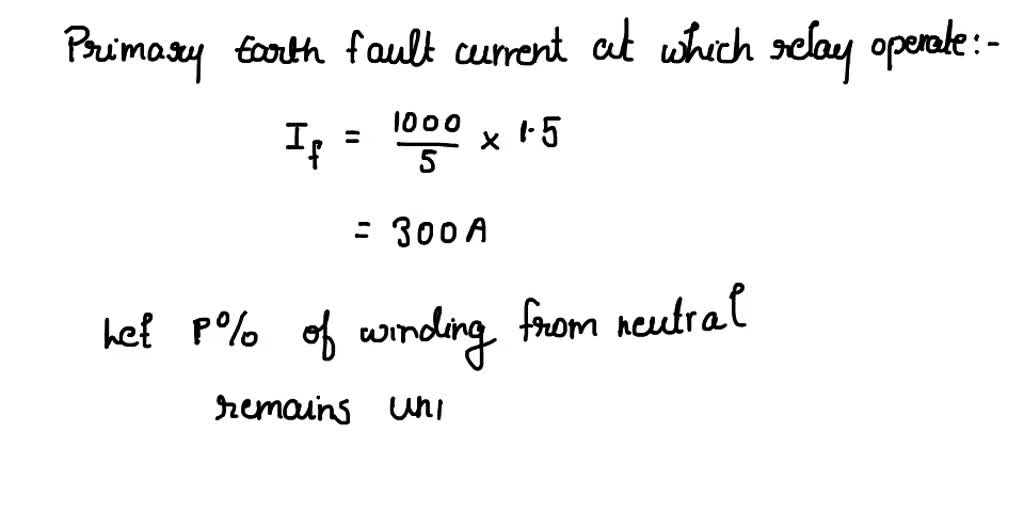 Primary earth fault current at which relay operate:-
I_f = 1000/5 × 1.5
= 300A
Let P% of winding from neutral
remains un